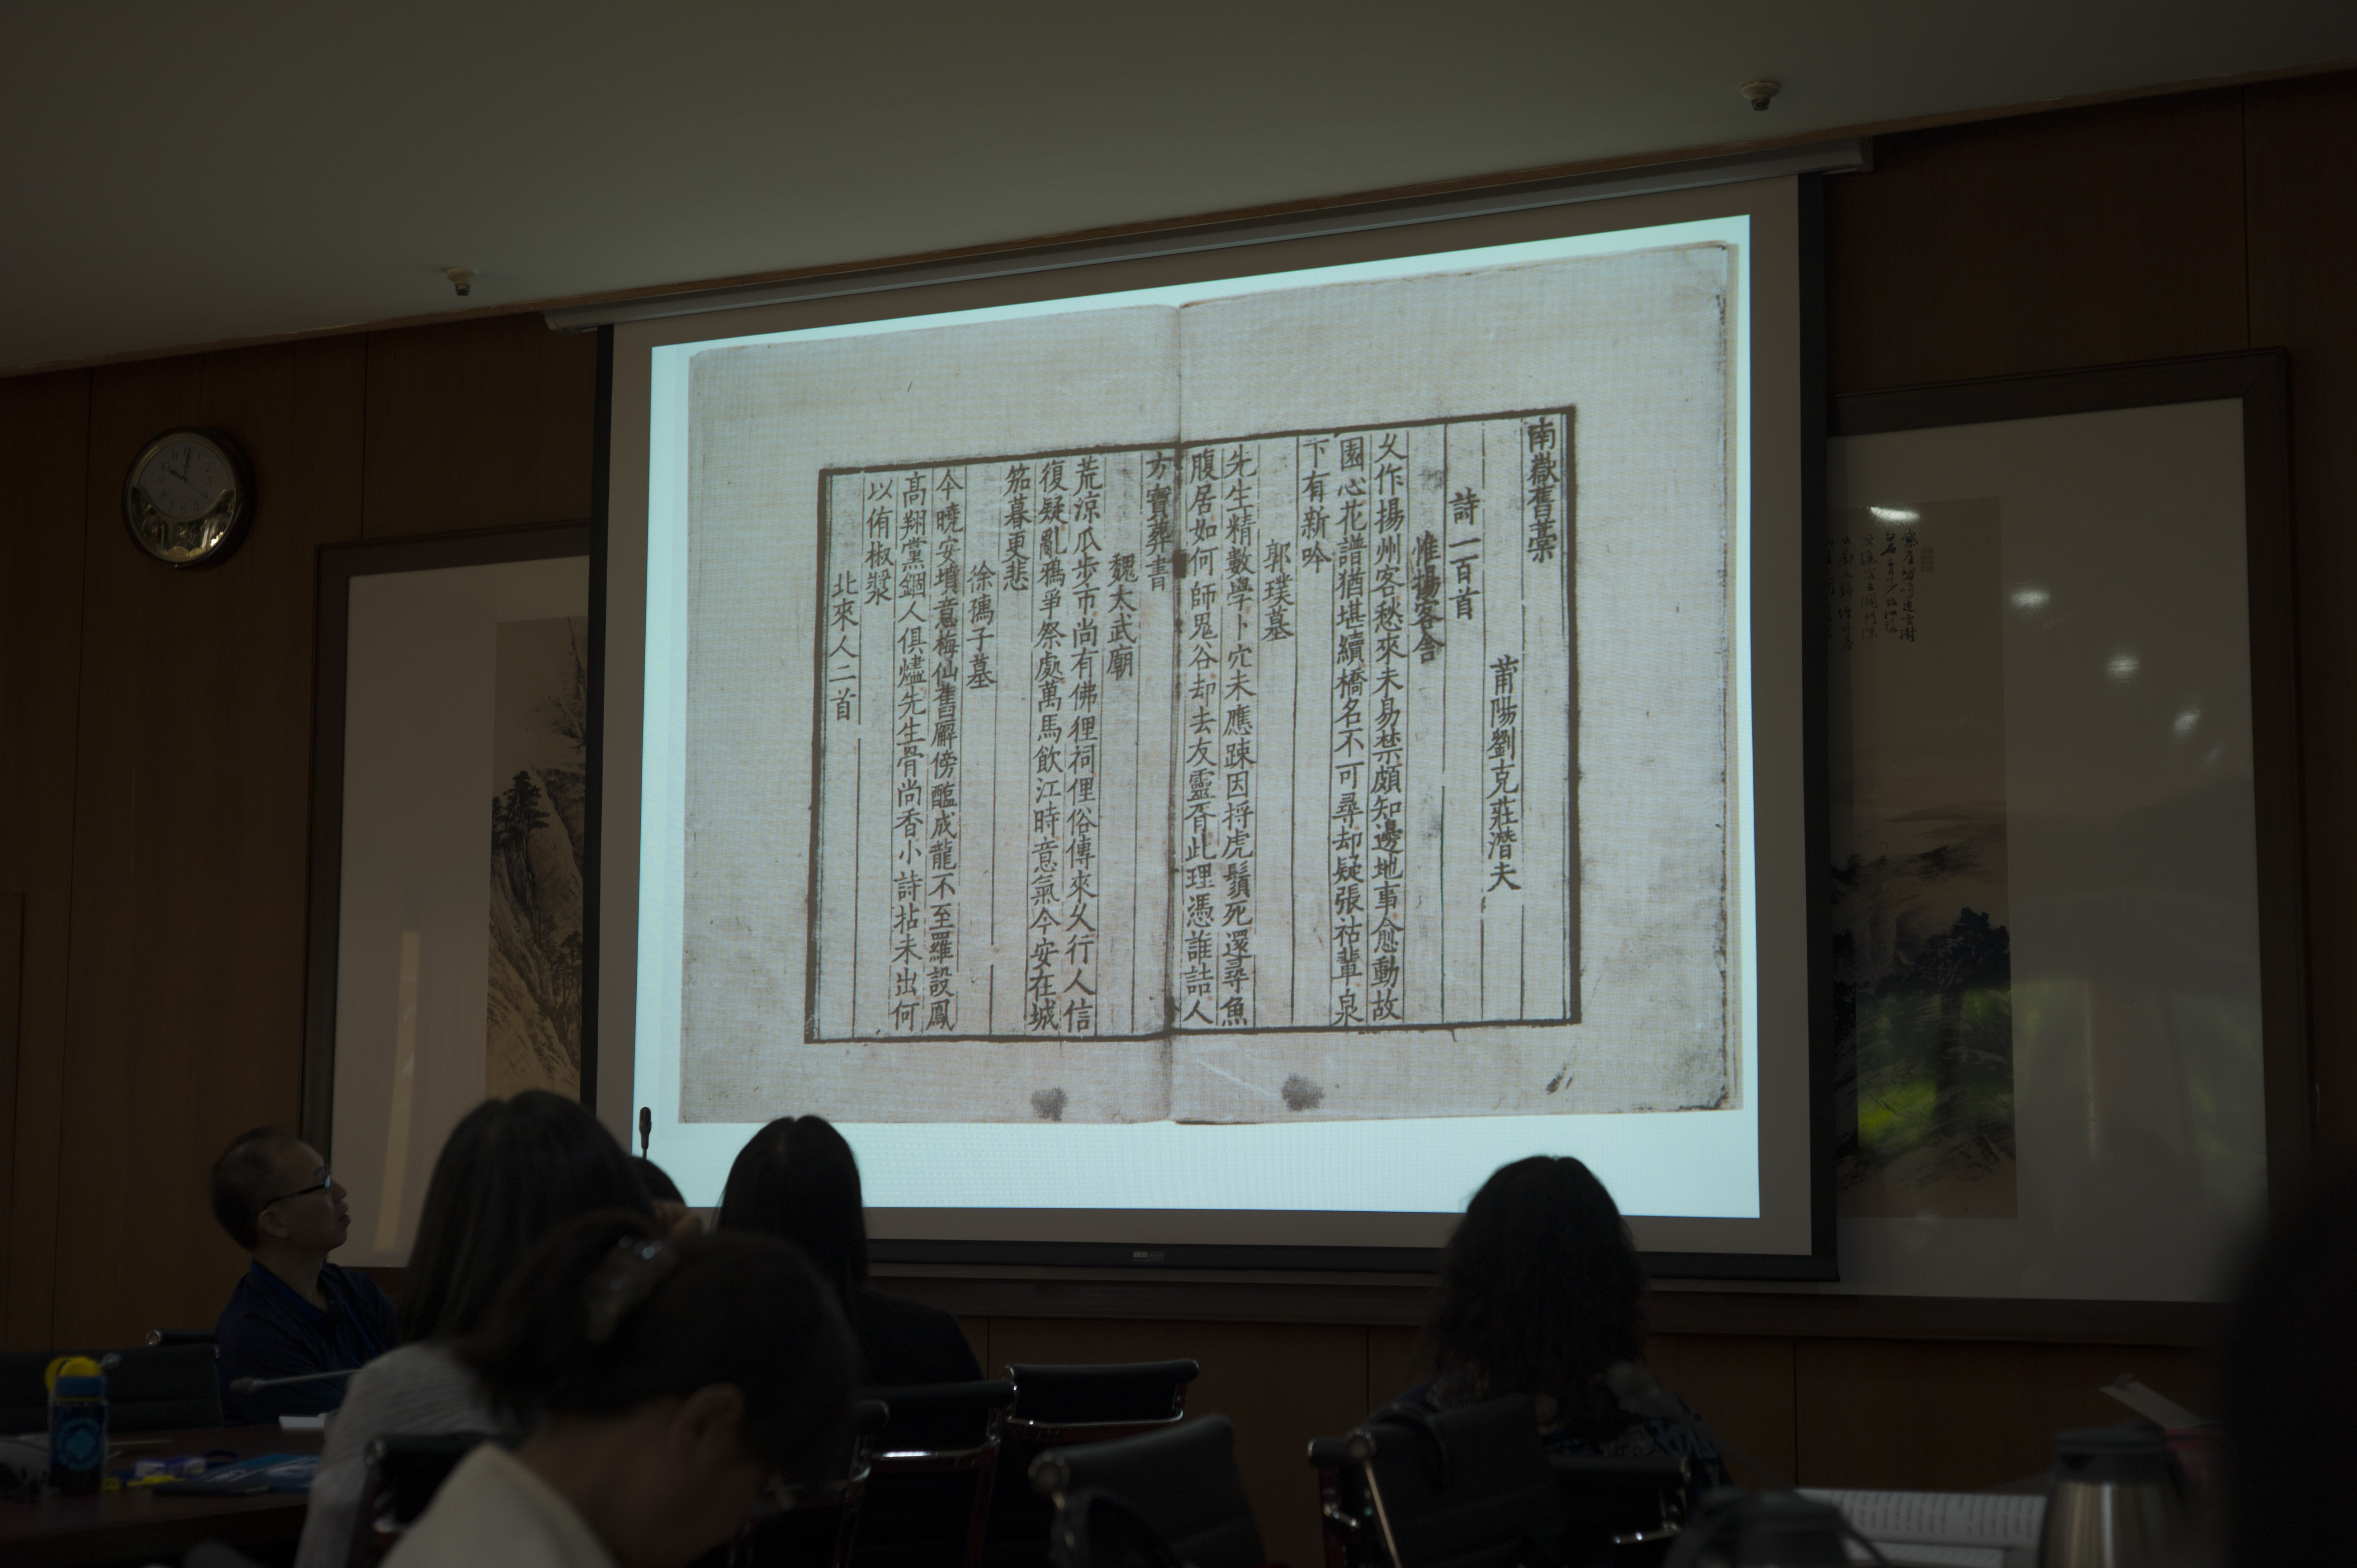 南嶽舊藁
莆陽劉克莊潛夫
詩一百首
惟揚客舎
乆作揚州客愁來未易禁頗知邊地事愈動故
園心花譜猶堪續橋名不可尋却疑張祜輩泉
下有新吟
郭璞墓
先生精數學卜穴未應踈因捋虎鬚死還尋魚
腹居如何師鬼谷却去友靈胥此理憑誰詰人
方寶葬書
魏太武廟
荒涼瓜步市尚有佛狸祠俚俗傳來乆行人信
復疑亂鴉爭祭處萬馬飲江時意氣今安在城
笳暮更悲
徐孺子墓
今曉安墳意梅仙舊廨傍醢成龍不至羅設鳳
髙翔黨錮人俱燼先生骨尚香小詩拈未出何
以侑椒漿
北來人二首